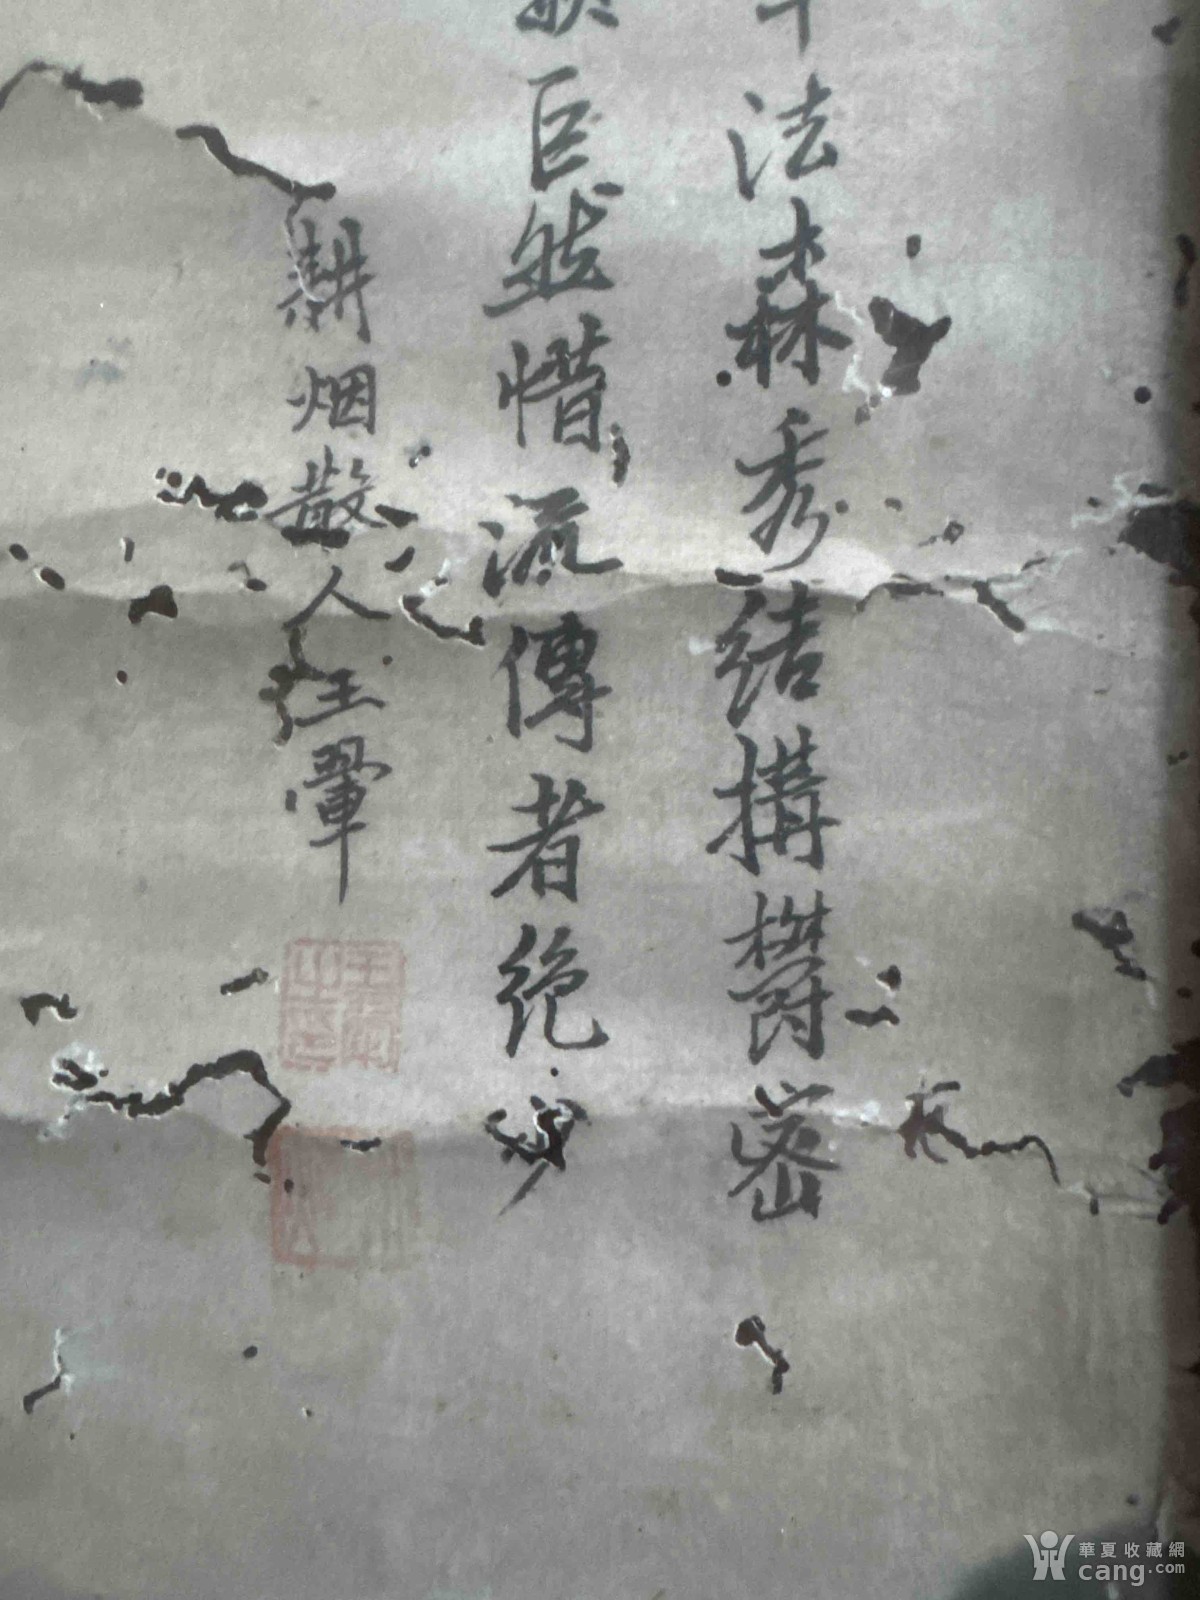 法森秀结構欝密
巨然惜流傳者绝少
耕烟散人王翬
華夏收藏網
cang.com